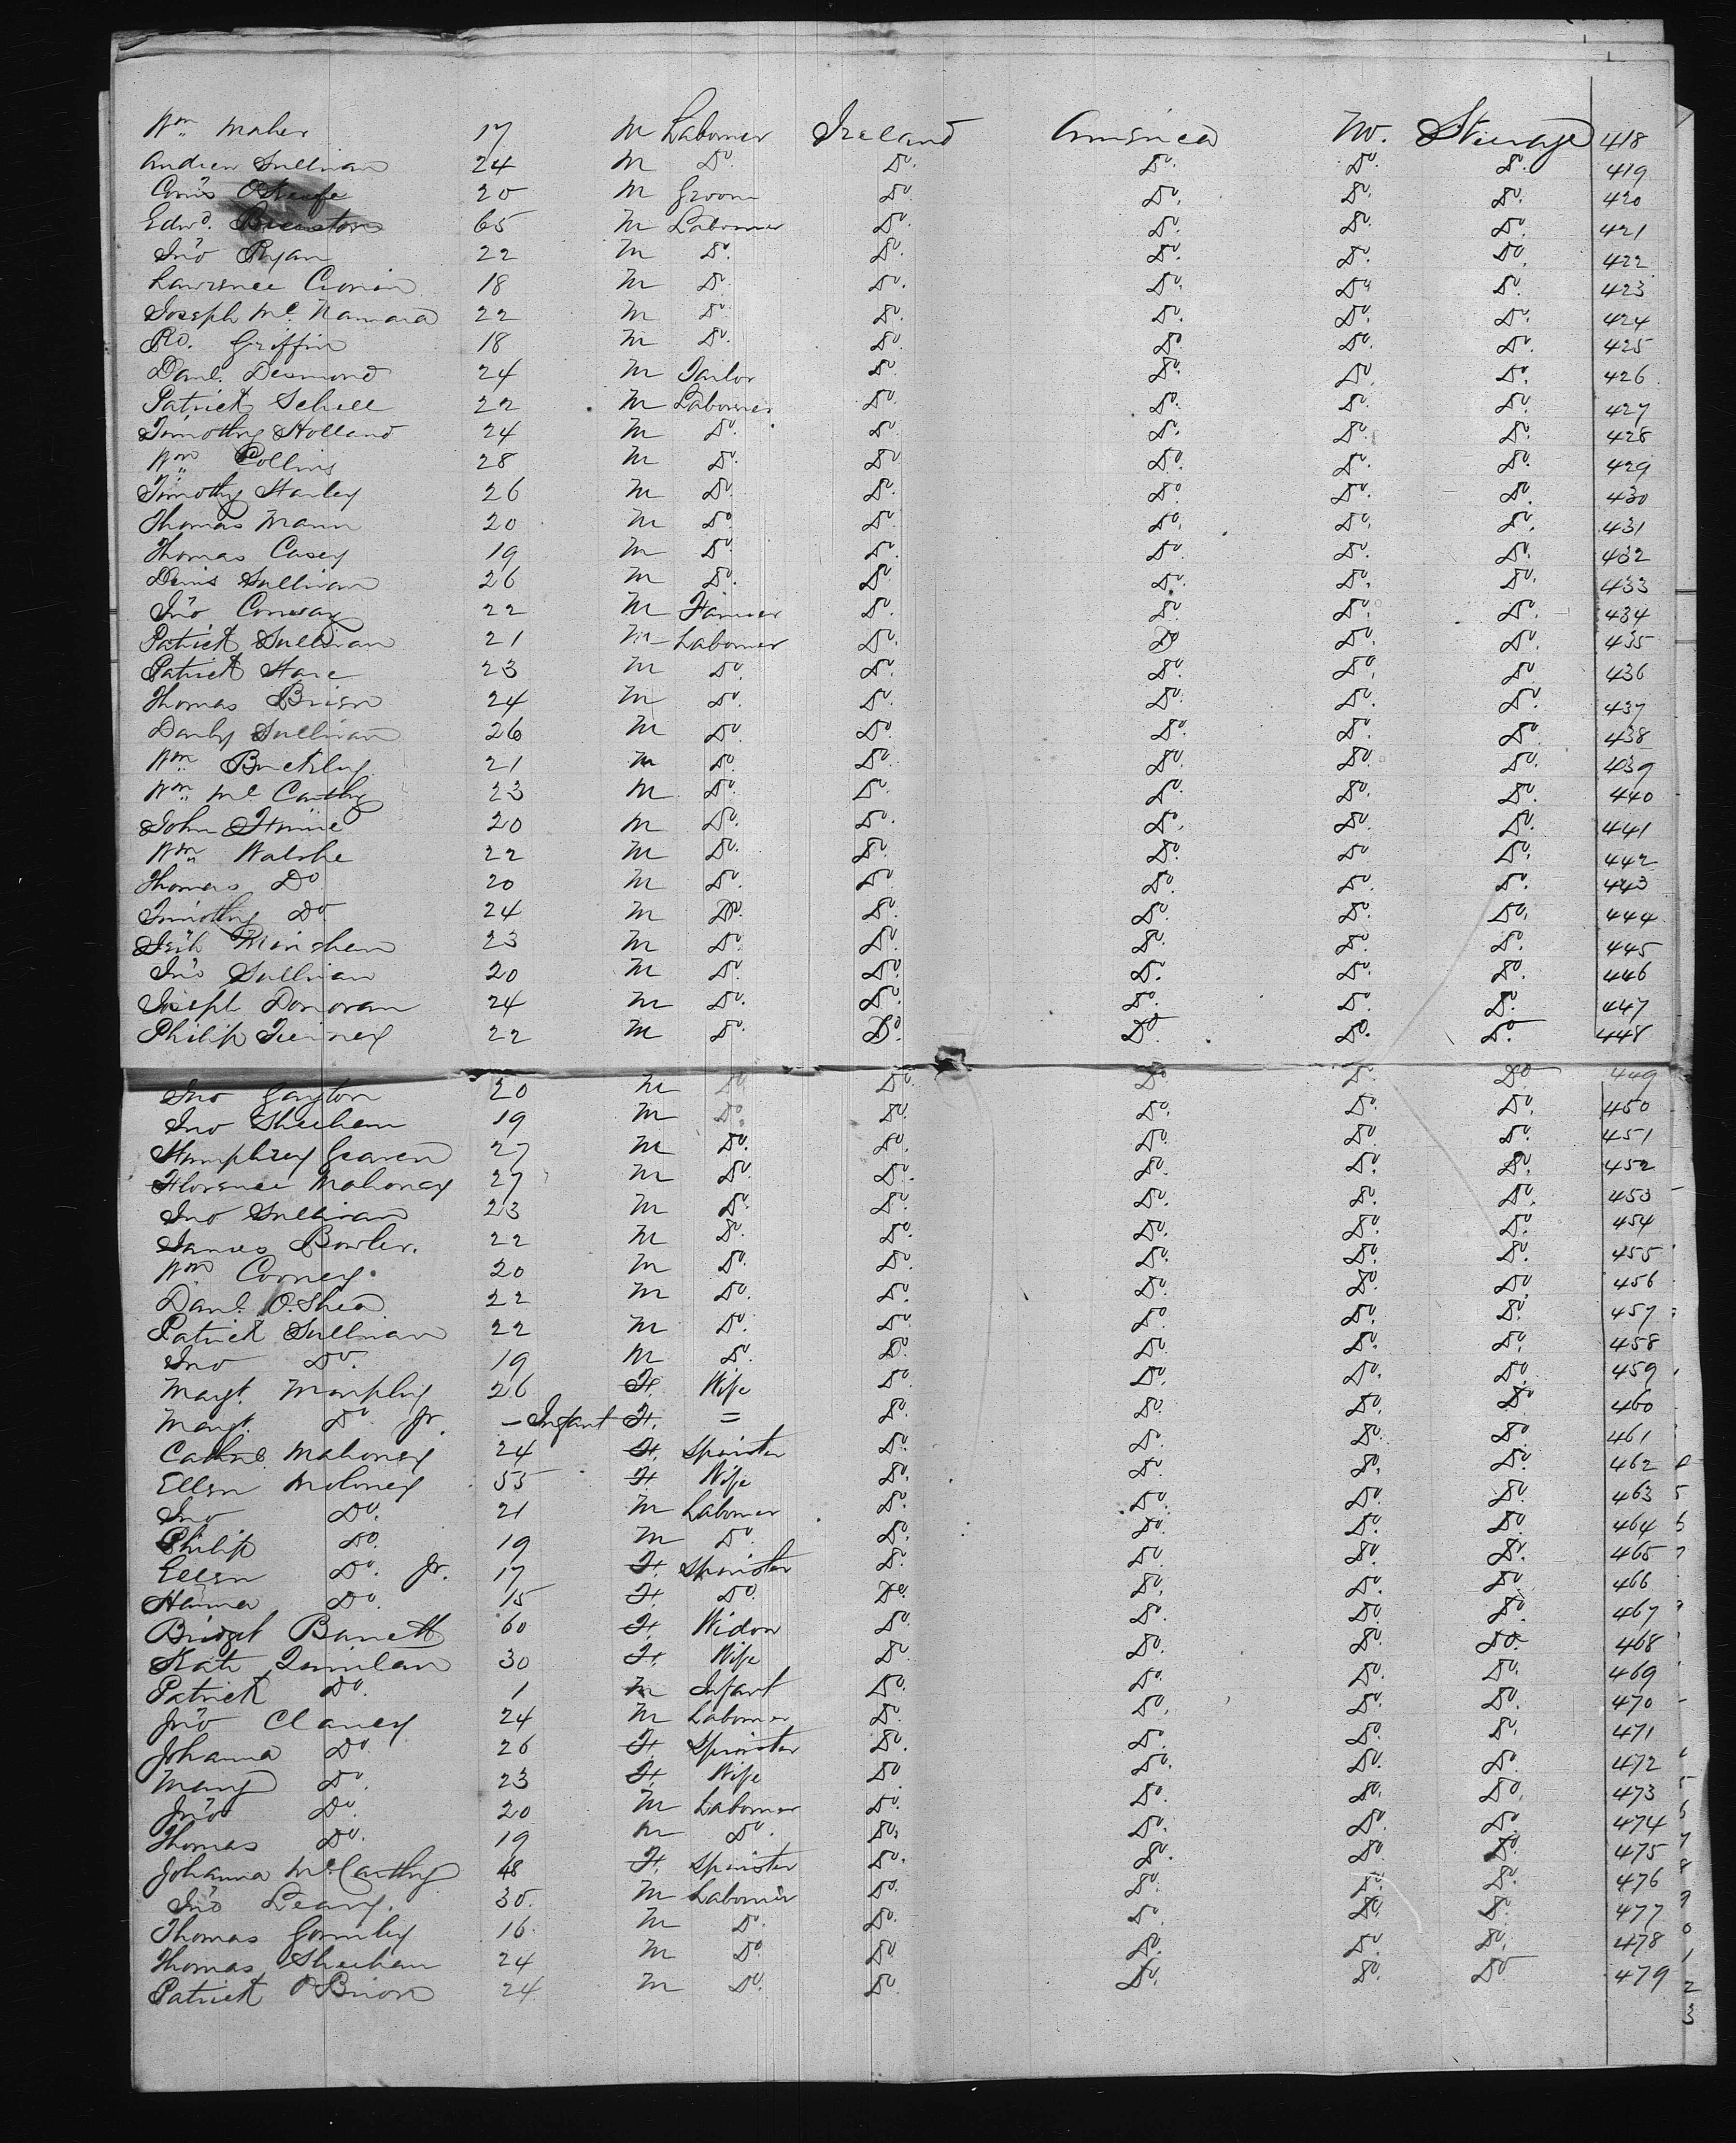 Wm Maher 17 M Labourer Ireland America No. Steerage 418
Andrew Sullivan 24 M Do. Do. Do. Do. Do. 419
Corns O'Keefe 20 M Groom Do. Do. Do. Do. 420
Edwd. 65 M Labourer Do. Do. Do. Do. 421
Jno Ryan 22 M Do. Do. Do. Do. Do. 422
Lawrence Cronin 18 M Do. Do. Do. Do. Do. 423
Joseph McNamara 22 M Do. Do. Do. Do. Do. 424
Rd. Griffin 18 M Do. Do. Do. Do. Do. 425
Danl. Desmond 24 M Tailor Do. Do. Do. Do. 426
Patrick 22 M Labourer Do. Do. Do. Do. 427
Timothy Holland 24 M Do. Do. Do. Do. Do. 428
Wm Collins 28 M Do. Do. Do. Do. Do. 429
Timothy Hanley 26 M Do. Do. Do. Do. Do. 430
Thomas Mann 20 M Do. Do. Do. Do. Do. 431
Thomas Casey 19 M Do. Do. Do. Do. Do. 432
Denis Sullivan 26 M Do. Do. Do. Do. Do. 433
Jno Conway 22 M Farmer Do. Do. Do. Do. 434
Patrick Sullivan 21 M Labourer Do. Do. Do. Do. 435
Patrick Hare 23 M Do. Do. Do. Do. Do. 436
Thomas Brien 24 M Do. Do. Do. Do. Do. 437
Darby Sullivan 26 M Do. Do. Do. Do. Do. 438
Wm Buckley 21 M Do. Do. Do. Do. Do. 439
Wm McCarthy 23 M Do. Do. Do. Do. Do. 440
John 20 M Do. Do. Do. Do. Do. 441
Wm Walshe 22 M Do. Do. Do. Do. Do. 442
Thomas Do. 20 M Do. Do. Do. Do. Do. 443
Timothy Do. 24 M Do. Do. Do. Do. Do. 444
23 M Do. Do. Do. Do. Do. 445
Jno Sullivan 20 M Do. Do. Do. Do. Do. 446
Joseph Donovan 24 M Do. Do. Do. Do. Do. 447
Philip 22 M Do. Do. Do. Do. Do. 448
Jno Gayton 20 M Do. Do. Do. Do. Do. 449
Jno Sheehan 19 M Do. Do. Do. Do. Do. 450
Humphrey 27 M Do. Do. Do. Do. Do. 451
Florence Mahoney 27 M Do. Do. Do. Do. Do. 452
Jno Sullivan 23 M Do. Do. Do. Do. Do. 453
James Bowler. 22 M Do. Do. Do. Do. Do. 454
Wm Cooney 20 M Do. Do. Do. Do. Do. 455
Danl. O'Shea 22 M Do. Do. Do. Do. Do. 456
Patrick Sullivan 22 M Do. Do. Do. Do. Do. 457
Jno Do. 19 M Do. Do. Do. Do. Do. 458
Margt. Murphy 26 F. Wife Do. Do. Do. Do. 459
Margt. Do. Jr. – Infant F. = Do. Do. Do. Do. 460
Cathne. Mahoney 24 F. Spinster Do. Do. Do. Do. 461
Ellen Moloney 55 F. Wife Do. Do. Do. Do. 462
Jno Do. 21 M Labourer Do. Do. Do. Do. 463
Philip Do. 19 M Do. Do. Do. Do. Do. 464
Ellen Do. Jr. 17 F. Spinster Do. Do. Do. Do. 465
Hanna Do. 15 F. Do. Do. Do. Do. Do. 466
Bridget Barrett 60 F. Widow Do. Do. Do. Do. 467
Kate Quinlan 30 F. Wife Do. Do. Do. Do. 468
Patrick Do. 1 M Infant Do. Do. Do. Do. 469
Jno Clancy 24 M Labourer Do. Do. Do. Do. 470
Johanna Do. 26 F. Spinster Do. Do. Do. Do. 471
Mary Do. 23 F. Wife Do. Do. Do. Do. 472
Jno Do. 20 M Labourer Do. Do. Do. Do. 473
Thomas Do. 19 M Do. Do. Do. Do. Do. 474
Johanna McCarthy 48 F. Spinster Do. Do. Do. Do. 475
Jno Leary. 30. M Labourer Do. Do. Do. Do. 476
Thomas Gormley 16 M Do. Do. Do. Do. Do. 477
Thomas Sheehan 24 M Do. Do. Do. Do. Do. 478
Patrick O'Brion 24 M Do. Do. Do. Do. Do. 479